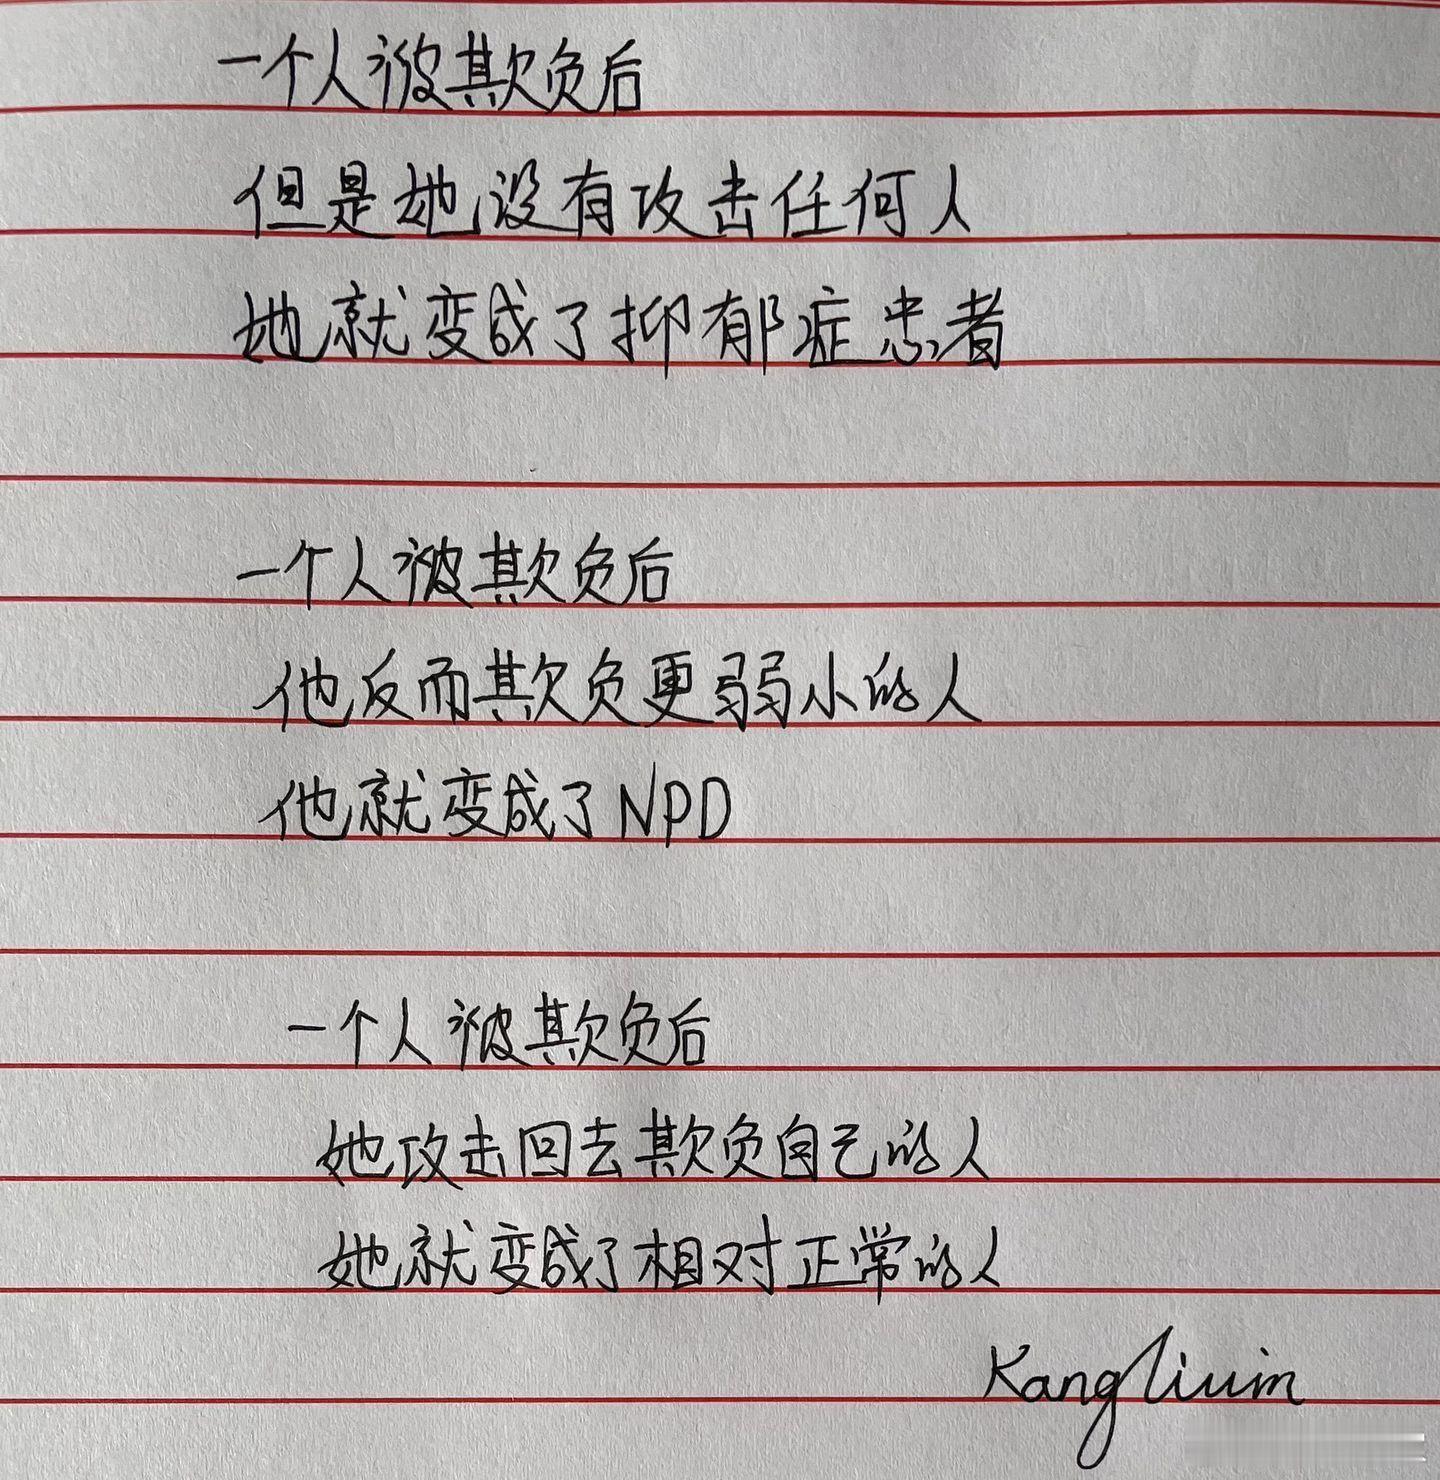 一个人被欺负后
但是她没有攻击任何人
她就变成了抑郁症患者
一个人被欺负后
他反而欺负更弱小的人
他就变成了NPD
一个人被欺负后
她攻击回去欺负自己的人
她就变成了相对正常的人